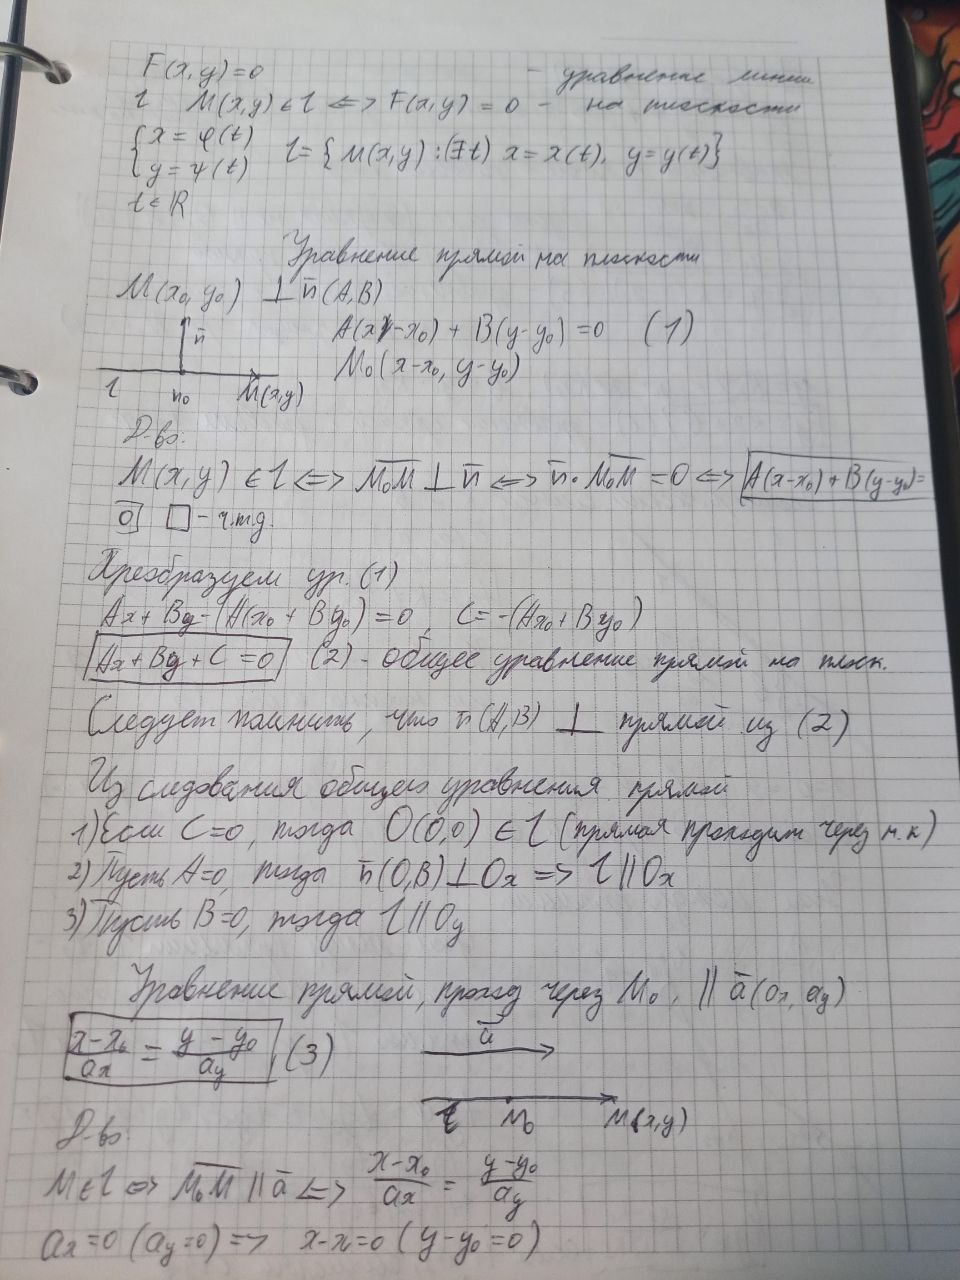 F(x,y)=0 - уравнение линии
l M(x,y)∈l <=> F(x,y)=0 - на плоскости
{x=φ(t)
{y=ψ(t) l={M(x,y):(∃t) x=x(t), y=y(t)}
t∈ℝ
Уравнение прямой на плоскости
M(x₀,y₀) ⊥ n̄(A,B)
n̄ A(x-x₀)+B(y-y₀)=0 (1)
M₀(x-x₀, y-y₀)
l n₀ M(x,y)
Д-во:
M(x,y)∈l <=> M₀M ⊥ n̄ <=> n̄·M₀M=0 <=> A(x-x₀)+B(y-y₀)=
0 □ - ч.т.д.
Преобразуем ур. (1)
Ax+By-(A(x₀+By₀)=0, C=-(Ax₀+By₀)
Ax+By+C=0 (2) - общее уравнение прямой на плоск.
Следует помнить, что n̄(A,B) ⊥ прямой из (2)
Из следования общего уравнения прямой
1) Если C=0, тогда O(0,0)∈l (прямая проходит через н.к)
2) Пусть A=0, тогда n̄(0,B)⊥Ox => l||Ox
3) Пусть B=0, тогда l||Oy
Уравнение прямой, проход через M₀, || ā(ax, ay)
x-x₀/ax = y-y₀/ay (3) ā
l M₀ M(x,y)
Д-во:
M∈l <=> M₀M || ā <=> x-x₀/ax = y-y₀/ay
ax=0 (ay=0) => x-x=0 (y-y₀=0)